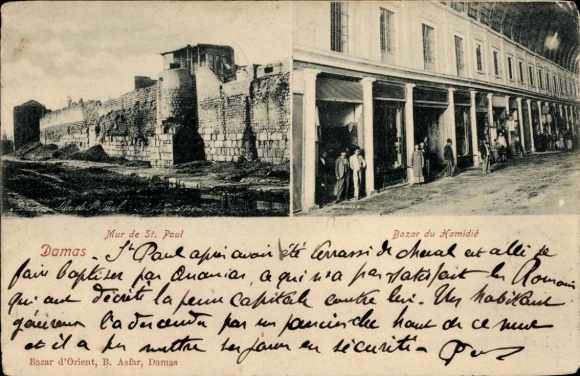 Mur de St. Paul
Bazar du Hamidié
Damas
St Paul après avoir été terrassé de cheval est allé se
faire baptiser par Ananias, ce qui n'a pas satisfait les Romains
qui ont décrété la peine capitale contre lui. Un habitant
généreux l'a descendu par un panier du haut de ce mur
et il a pu mettre ses jours en sécurité.
Bazar d'Orient, B. Asfar, Damas